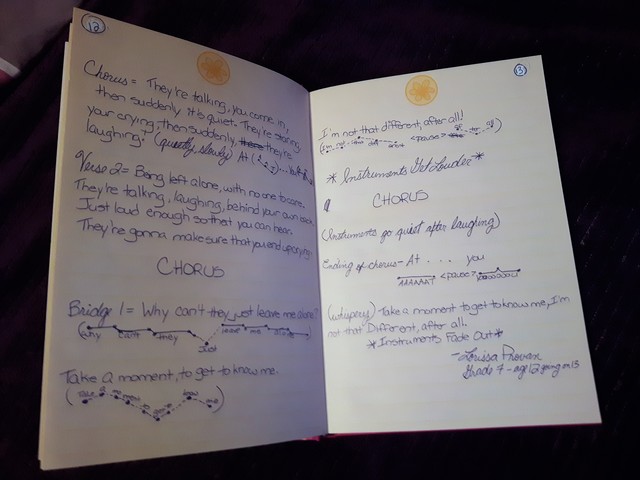 12
Chorus = They're talking, you come in,
then suddenly it's quiet. They're staring,
your crying, then suddenly, there they're
laughing. (quietly, slowly) At
Verse 2 = Being left alone, with no one to care.
They're talking, laughing, behind your own back,
Just loud enough so that you can hear.
They're gonna make sure that you end up crying.
CHORUS
Bridge 1 = Why can't they just leave me alone?
(Why can't they Just leave me alone)
Take a moment, to get to know me.
(take a moment to get to know me)
13
I'm not that different, after all!
<pause>
*Instruments Get Louder*
CHORUS
(Instruments go quiet after laughing)
Ending of chorus - At . . . you
AAAAAAT <pause>
(whispery) Take a moment to get to know me, I'm
not that Different, after all.
*Instruments Fade Out*
- Lorissa Provan
Grade 7 - age 12 going on 13